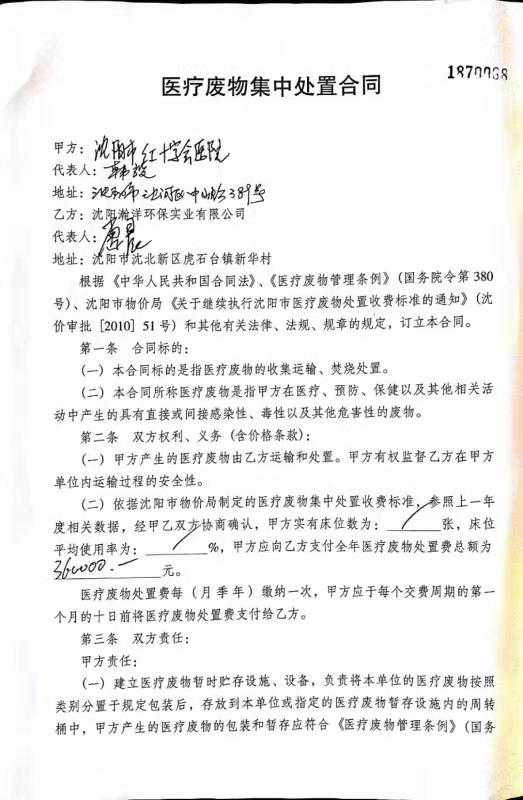 1870068
医疗废物集中处置合同
甲方：沈阳市红十字会医院
代表人：韩毅
地址：沈阳市沈河区中山路389号
乙方：沈阳瀚洋环保实业有限公司
代表人：
地址：沈阳市沈北新区虎石台镇新华村
根据《中华人民共和国合同法》、《医疗废物管理条例》（国务院令第380
号）、沈阳市物价局《关于继续执行沈阳市医疗废物处置收费标准的通知》（沈
价审批［2010］51号）和其他有关法律、法规、规章的规定，订立本合同。
第一条 合同标的：
（一）本合同标的是指医疗废物的收集运输、焚烧处置。
（二）本合同所称医疗废物是指甲方在医疗、预防、保健以及其他相关活
动中产生的具有直接或间接感染性、毒性以及其他危害性的废物。
第二条 双方权利、义务（含价格条款）：
（一）甲方产生的医疗废物由乙方运输和处置。甲方有权监督乙方在甲方
单位内运输过程的安全性。
（二）依据沈阳市物价局制定的医疗废物集中处置收费标准，参照上一年
度相关数据，经甲乙双方协商确认，甲方实有床位数为：/张，床位
平均使用率为：/%，甲方应向乙方支付全年医疗废物处置费总额为
360000.—元。
医疗废物处置费每（月季年）缴纳一次，甲方应于每个交费周期的第一
个月的十日前将医疗废物处置费支付给乙方。
第三条 双方责任：
甲方责任：
（一）建立医疗废物暂时贮存设施、设备，负责将本单位的医疗废物按照
类别分置于规定包装后，存放到本单位或指定的医疗废物暂存设施内的周转
桶中，甲方产生的医疗废物的包装和暂存应符合《医疗废物管理条例》（国务